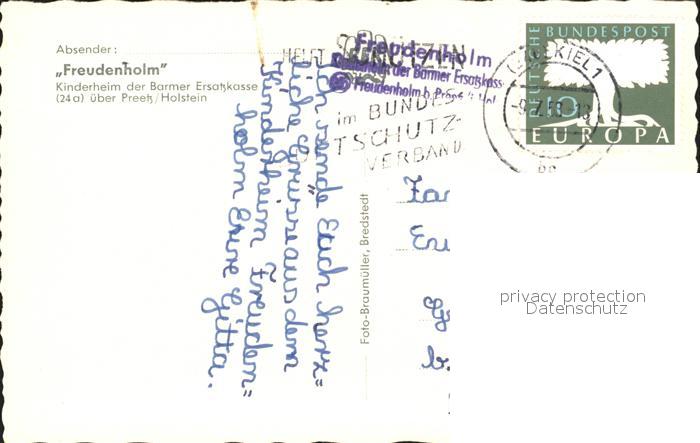 Absender:
„Freudenholm"
Kinderheim der Barmer Ersatzkasse
(24a) über Preetz/Holstein
HELFT
SCHÜTZEN
im BUNDES
TSCHUTZ-
VERBAND
Freudenholm
Kinderheim der Barmer Ersatzkass
Freudenholm b. Preetz i. Hol
KIEL 1
DEUTSCHE BUNDESPOST
10
EUROPA
Ich sende Euch herz=
liche Grüsse aus dem
Kinderheim Freuden=
holm Eure Gitta.
Foto-Braumüller, Bredstedt
Fa
privacy protection
Datenschutz